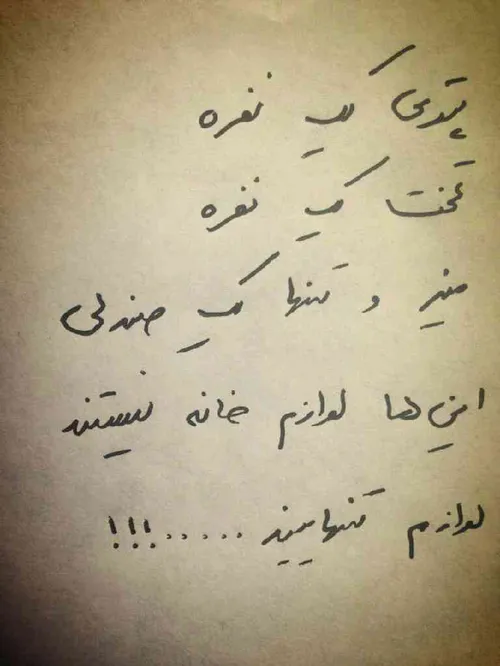 پتوی یک نفره
تخت یک نفره
میز و تنها یک صندلی
این ها لوازم خانه نیستند
لوازم تنهایید.....!!!